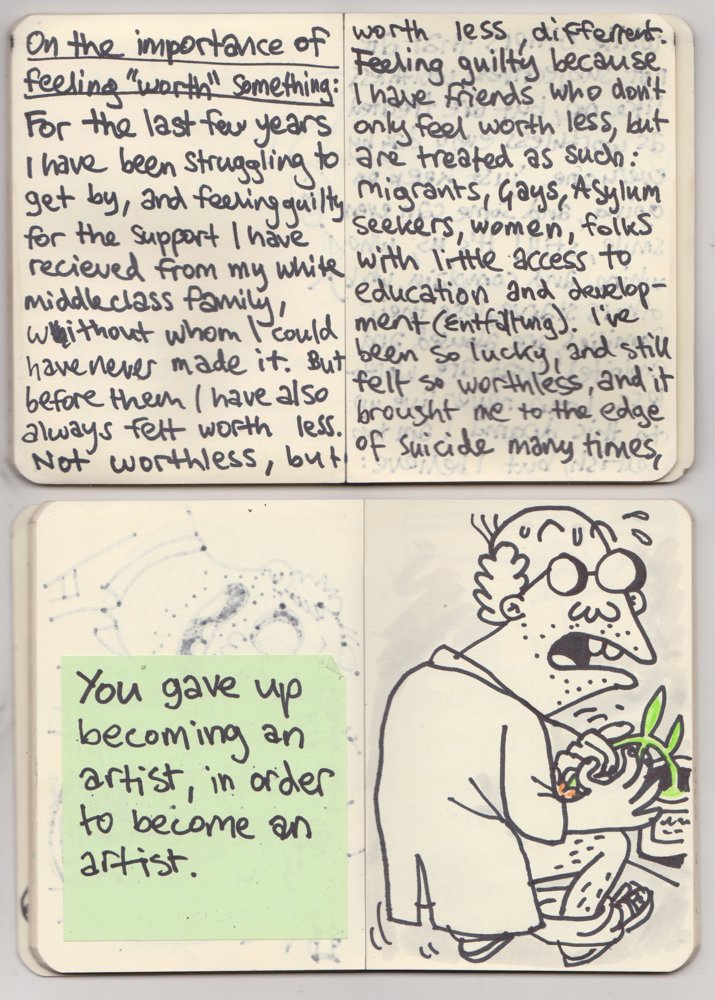 On the importance of
feeling "worth" something:
For the last few years
I have been struggling to
get by, and feeling guilty
for the support I have
recieved from my white
middleclass family,
without whom I could
have never made it. But
before them I have also
always felt worth less.
Not worthless, but
worth less, different.
Feeling guilty because
I have friends who don't
only feel worth less, but
are treated as such:
Migrants, Gays, Asylum
seekers, women, folks
with little access to
education and develop-
ment (Entfaltung). I've
been so lucky, and still
felt so worthless, and it
brought me to the edge
of suicide many times,
You gave up
becoming an
artist, in order
to become an
artist.